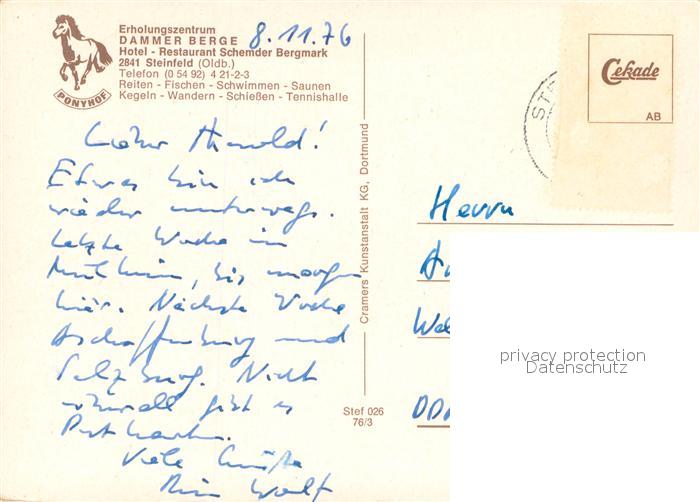 Erholungszentrum
DAMMER BERGE
8.11.76
Hotel - Restaurant Schemder Bergmark
2841 Steinfeld (Oldb.)
Telefon (0 54 92) 4 21-2-3
Reiten - Fischen - Schwimmen - Saunen
Kegeln - Wandern - Schießen - Tennishalle
PONYHOF
Cekade
AB
STE
Lieber Harold!
Etwas bin ich
wieder unterwegs.
Letzte Woche in
Mülheim, bis morgen
hier. Nächste Woche
Aschaffenburg und
Salzburg. Nicht
überall gibt es
Postkarten.
Viele Grüße
Dein Wolf
Cramers Kunstanstalt KG, Dortmund
Stef 026
76/3
Herrn
DDR
privacy protection
Datenschutz